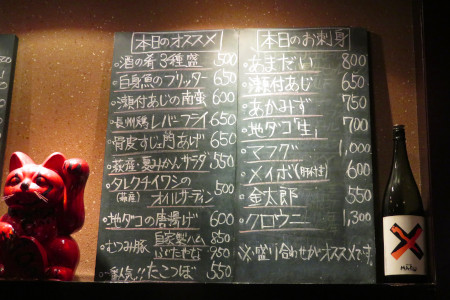 本日のオススメ
・酒の肴 3種盛 500
・白身魚のフリッター 650
・瀬付あじの南蛮 600
・長州鶏レバーフライ 650
・骨皮すじ肉あげ 650
・萩産・夏みかんサラダ 550
・タレクチイワシの
(萩産) オイルサーディン 500
・地ダコの唐揚げ 600
・むつみ豚 自家製ハム 850
750
・人気!!たこつぼ 550
本日のお刺身
・あまだい 800
・瀬付あじ 650
・あかみず 750
・地ダコ「生」 700
・マフグ 1,000
・メイボ(肝付き) 600
・金太郎 550
・クロウニ 1,300
※盛り合わせがオススメです。